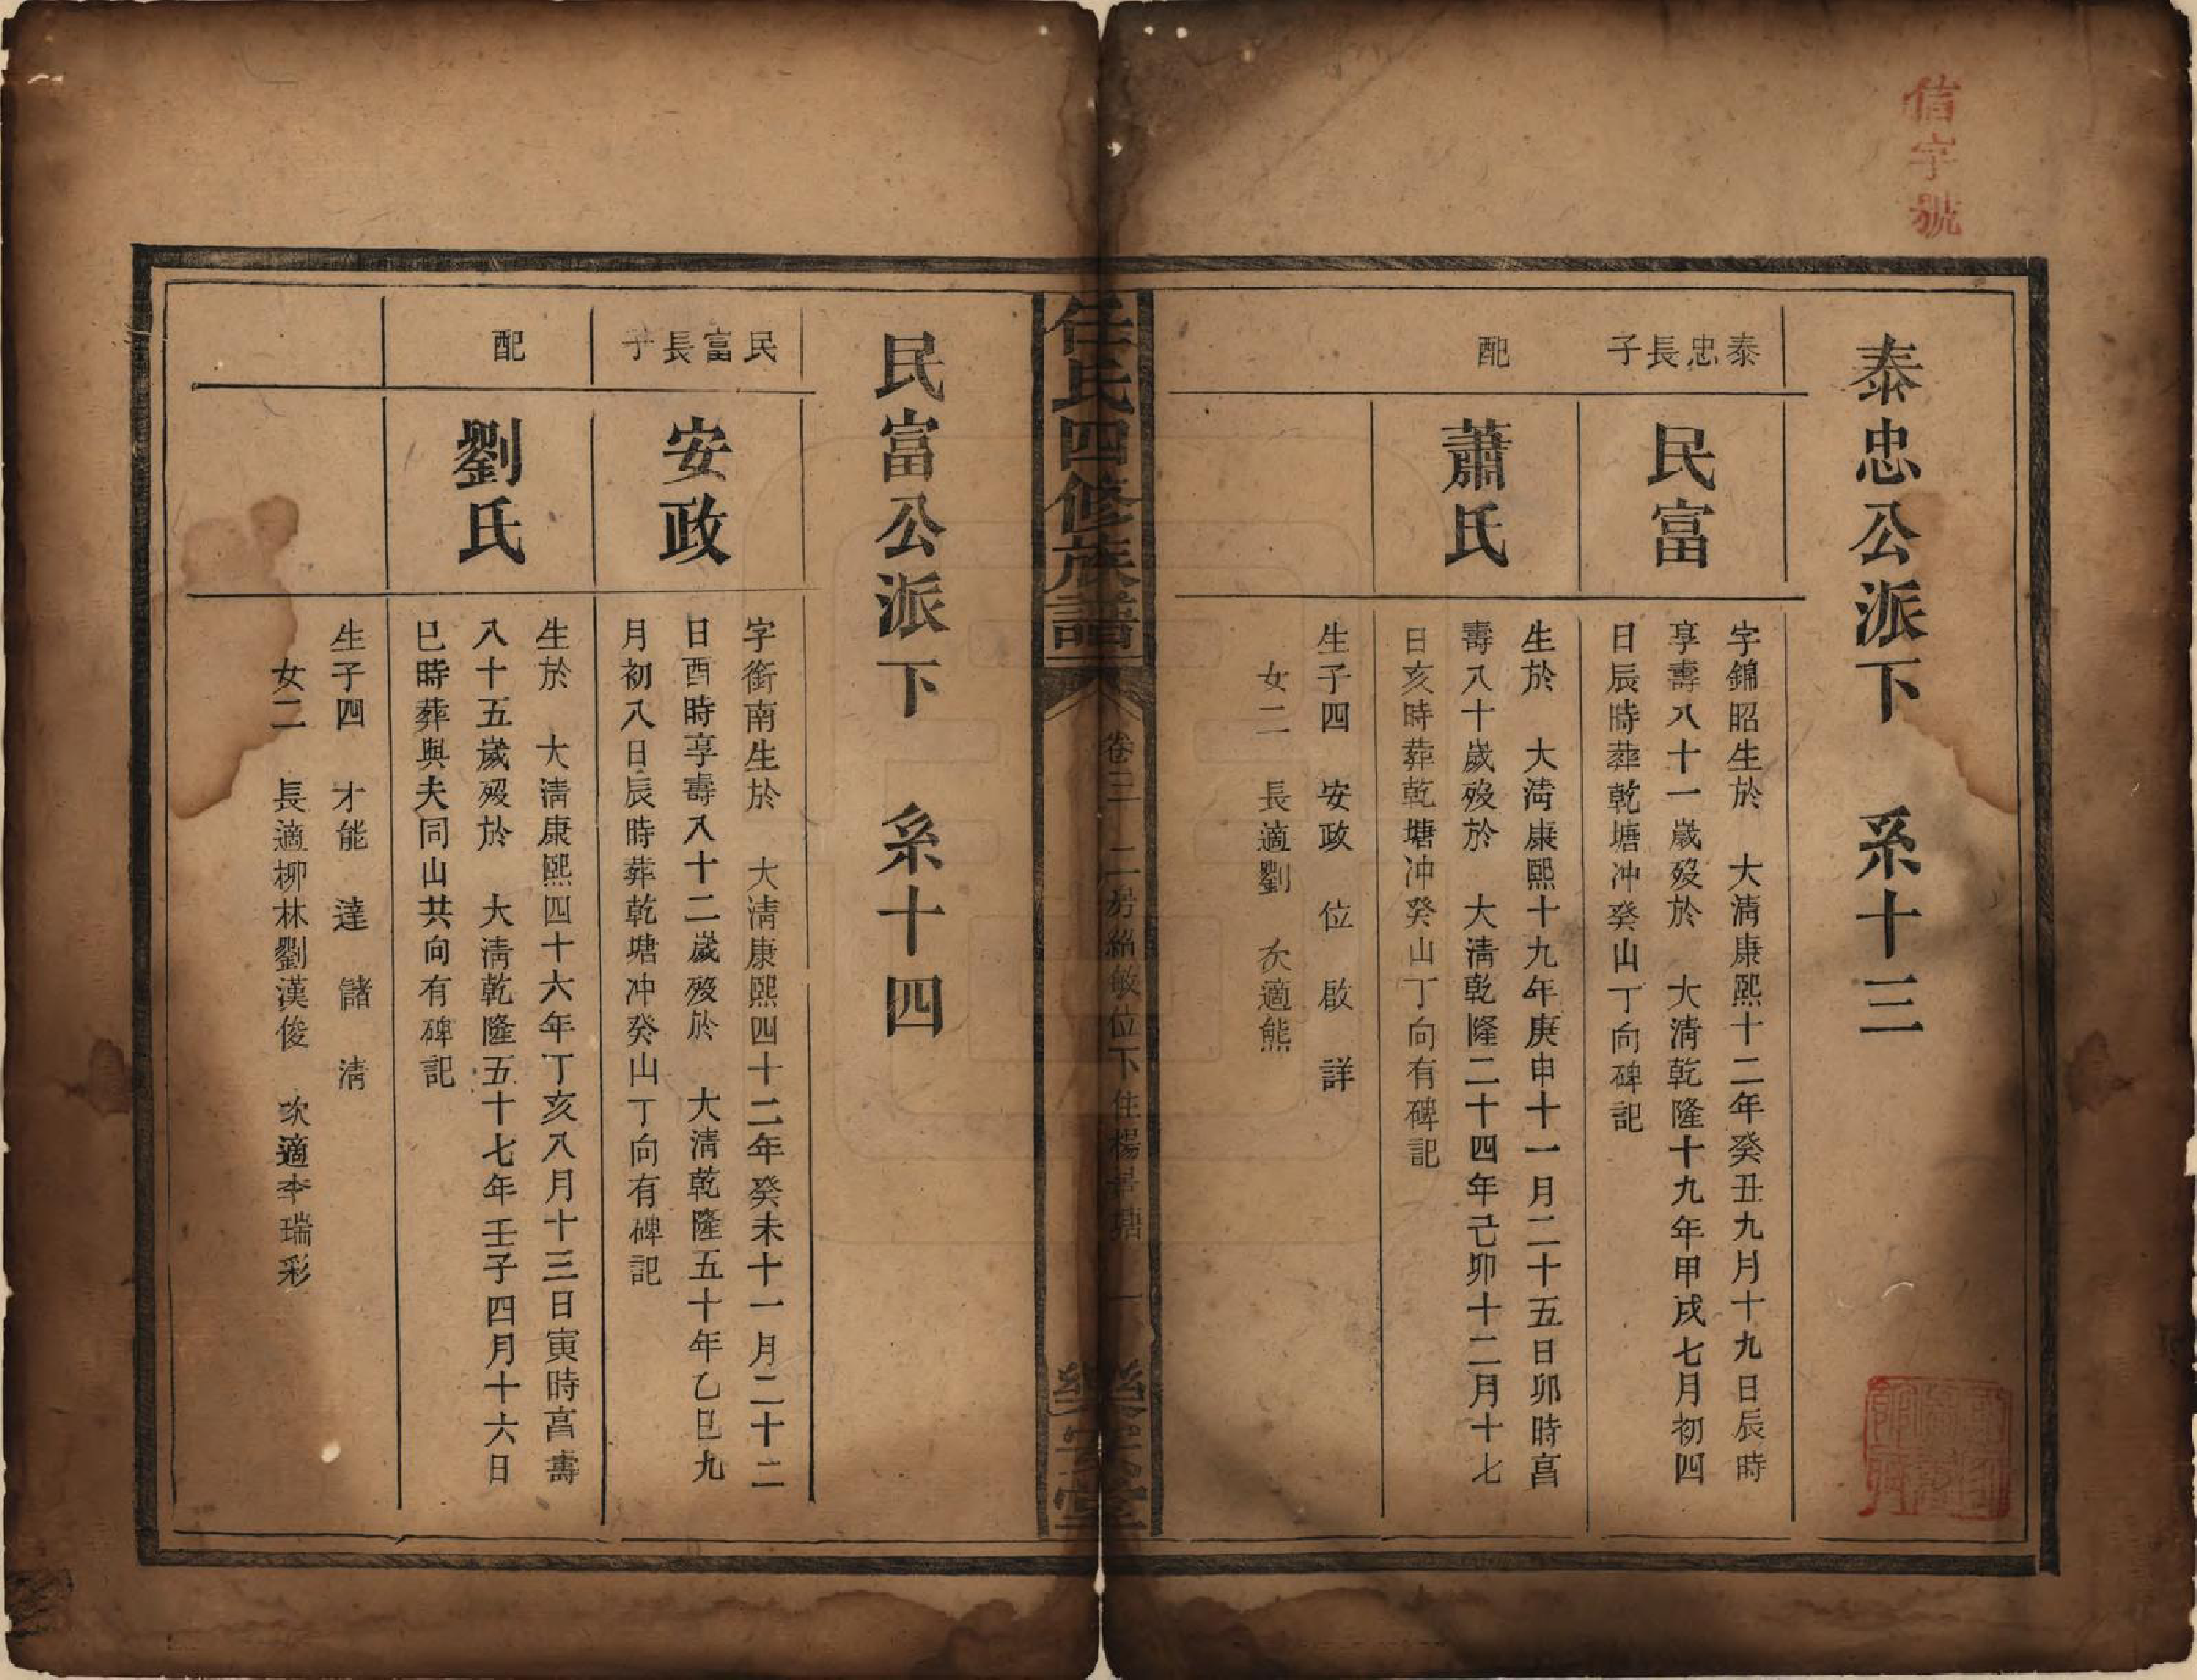 信字號
泰忠公派下　系十三
泰忠長子
民富
字錦昭生於　大清康熙十二年癸丑九月十九日辰時
享壽八十一歲歿於　大清乾隆十九年甲戌七月初四
日辰時葬乾塘冲癸山丁向碑記
配
蕭氏
生於　大清康熙十九年庚申十一月二十五日卯時享
壽八十歲歿於　大清乾隆二十四年己卯十二月十七
日亥時葬乾塘冲癸山丁向有碑記
生子四　安政　位　啟　詳
女二　長適劉　次適熊
任氏四修族譜
卷三　二房紹敏位下住楊
一
樂安堂
民富公派下　系十四
民富長子
安政
字衝南生於　大清康熙四十二年癸未十一月二十二
日酉時享壽八十二歲歿於　大清乾隆五十年乙巳九
月初八日辰時葬乾塘冲癸山丁向有碑記
配
劉氏
生於　大清康熙四十六年丁亥八月十三日寅時享壽
八十五歲歿於　大清乾隆五十七年壬子四月十六日
巳時葬與夫同山共向有碑記
生子四　才能　達　儲　清
女二　長適柳林劉漢俊　次適李瑞彩